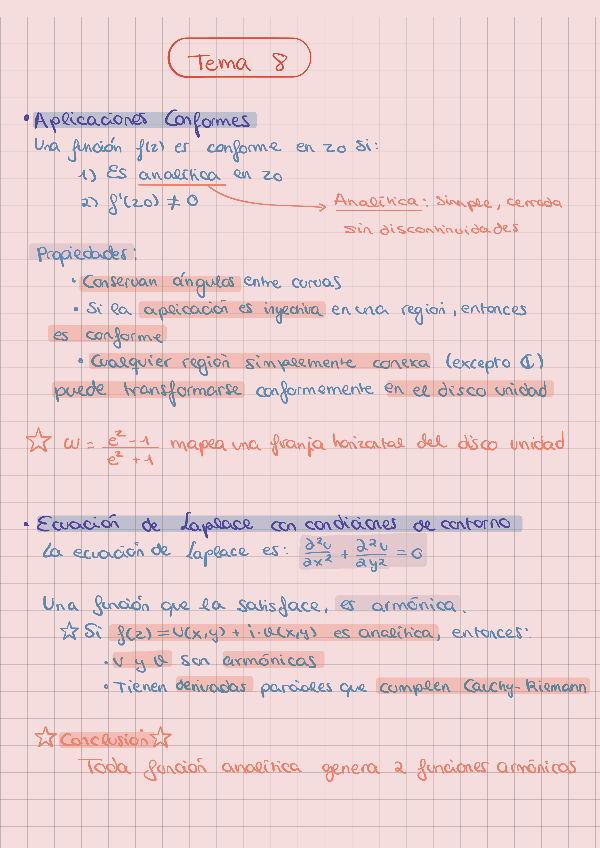 Tema 8
• Aplicaciones Conformes
Una función f(z) es conforme en z0 si:
1) Es analítica en z0
2) f'(z0) ≠ 0
Analítica: simple, cerrada
sin discontinuidades
Propiedades:
• Conservan ángulos entre curvas
• Si la aplicación es inyectiva en una región, entonces
es conforme
• Cualquier región simplemente conexa (excepto ℂ)
puede transformarse conformemente en el disco unidad
☆ ω = (e^z - 1)/(e^z + 1) mapea una franja horizontal del disco unidad
• Ecuación de Laplace con condiciones de contorno
La ecuación de Laplace es: ∂²u/∂x² + ∂²u/∂y² = 0
Una función que la satisface, es armónica.
☆ Si f(z) = u(x,y) + i·v(x,y) es analítica, entonces:
• u y v son armónicas
• Tienen derivadas parciales que cumplen Cauchy-Riemann
☆ Conclusión ☆
Toda función analítica genera 2 funciones armónicas